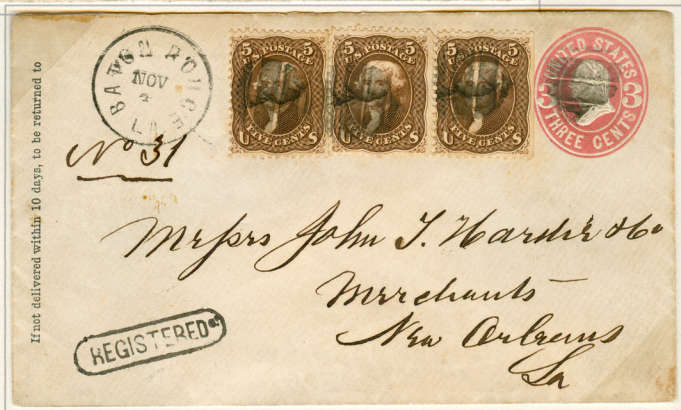 If not delivered within 10 days, to be returned to
BATON ROUGE
NOV
4
LA
5 5
U.S. POSTAGE
FIVE CENTS
U S
5 5
U.S. POSTAGE
FIVE CENTS
U S
5 5
U.S. POSTAGE
FIVE CENTS
U S
UNITED STATES
3 3
THREE CENTS
No 31
Messrs John T. Hardie & Co
Merchants
New Orleans
La
REGISTERED